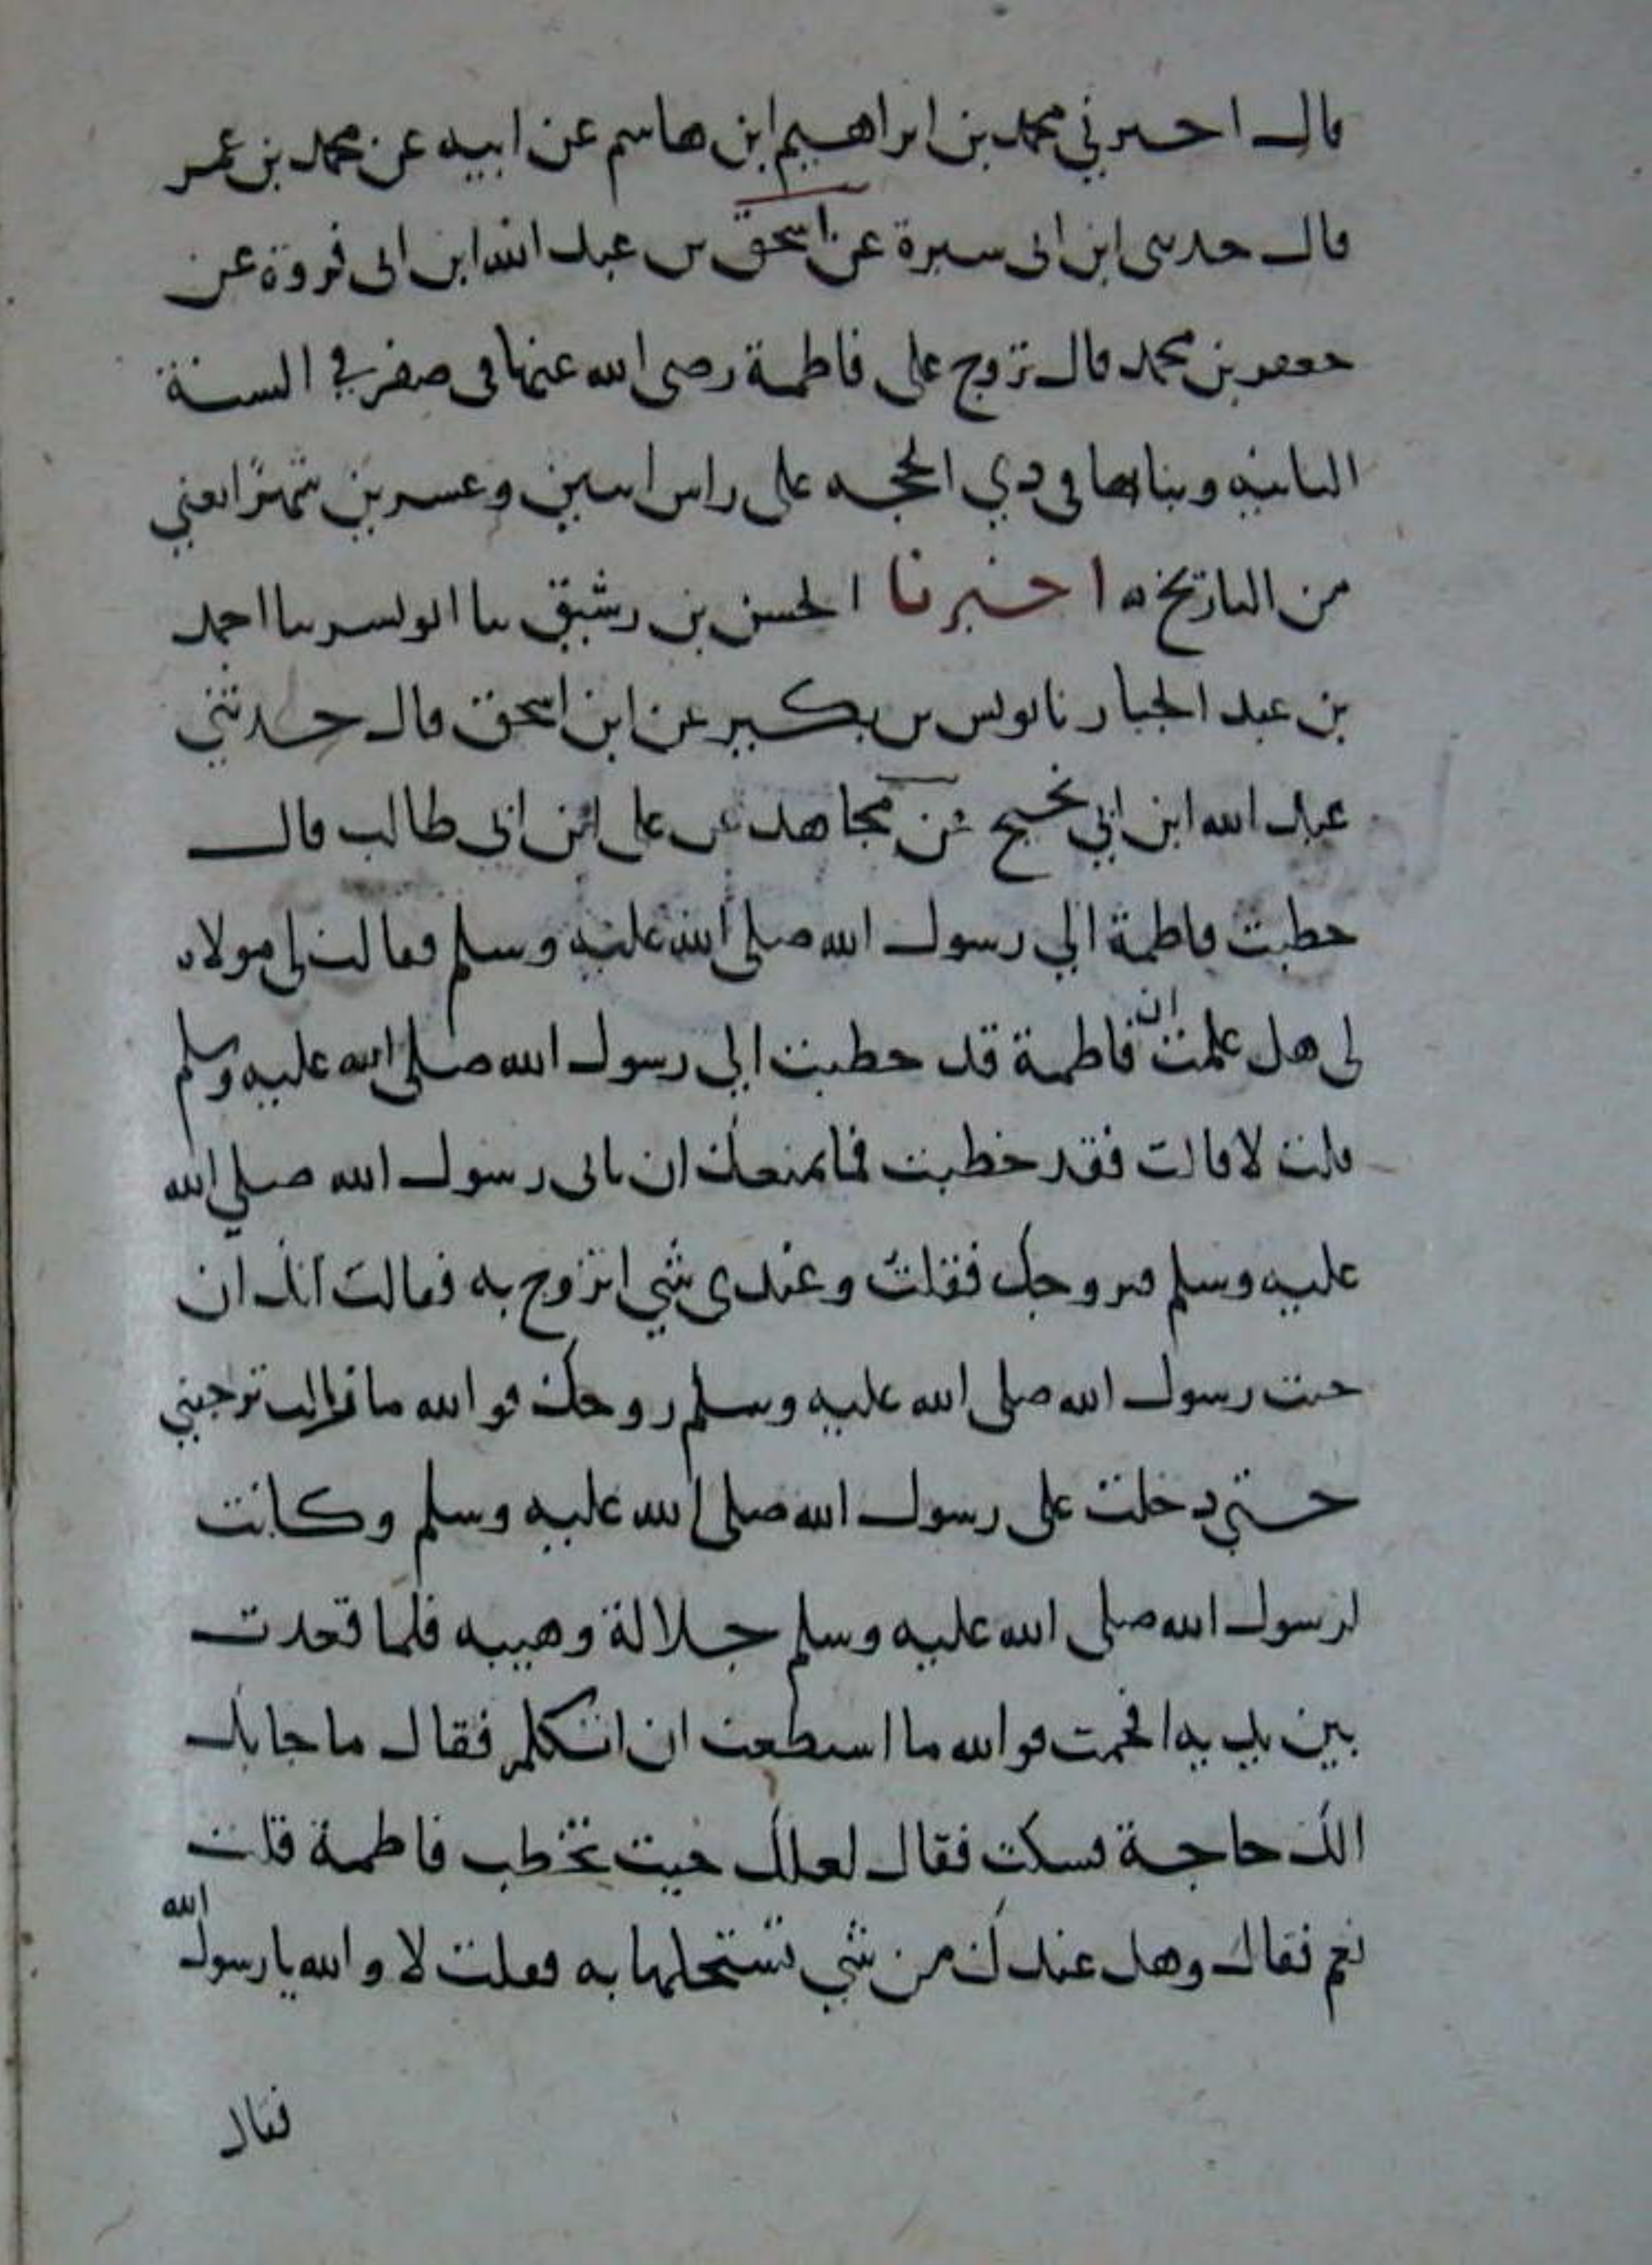 قال اخبرني محمد بن ابراهيم ابن هاشم عن ابيه عن محمد بن عمر
قال حدثني ابن ابي سبرة عن اسحق بن عبد الله ابن ابي فروة عن
جعفر بن محمد قال تزوج علي فاطمة رضي الله عنها في صفر في السنة
الثانية وبناها في ذي الحجه علي راس اثنين وعشرين شهرا يعني
من التاريخ ه اخبرنا الحسن بن رشيق ثنا ابو بشر ثنا احمد
بن عبد الجبار نا يونس بن بكير عن ابن اسحق قال حدثني
عبد الله ابن ابي نجيح عن مجاهد عن علي ابن ابي طالب قال
خطبت فاطمة الي رسول الله صلي الله عليه وسلم فقالت لي مولاه
لي هل علمت ان فاطمة قد خطبت الي رسول الله صلي الله عليه وسلم
قلت لا قالت فقد خطبت فما يمنعك ان تاتي رسول الله صلي الله
عليه وسلم فيزوجك فقلت وعندي شي اتزوج به فقالت انك ان
جيت رسول الله صلي الله عليه وسلم زوجك فوالله ما زالت ترجيني
حتي دخلت علي رسول الله صلي الله عليه وسلم وكانت
لرسول الله صلي الله عليه وسلم جلالة وهيبه فلما قعدت
بين يديه افحمت فوالله ما استطعت ان اتكلم فقال ما جا بك
الك حاجة فسكت فقال لعلك جيت تخطب فاطمة قلت
نعم فقال وهل عندك من شي تستحلها به فقلت لا والله يا رسول الله
فقال